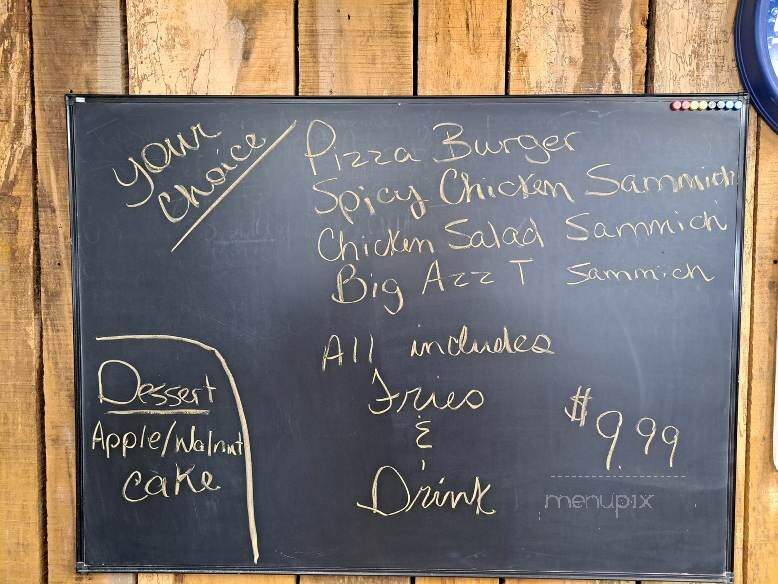 Your
Choice
Pizza Burger
Spicy Chicken Sammich
Chicken Salad Sammich
Big Azz T Sammich
All includes
Fries
&
Drink
$9.99
Dessert
Apple/Walnut
cake
menupix